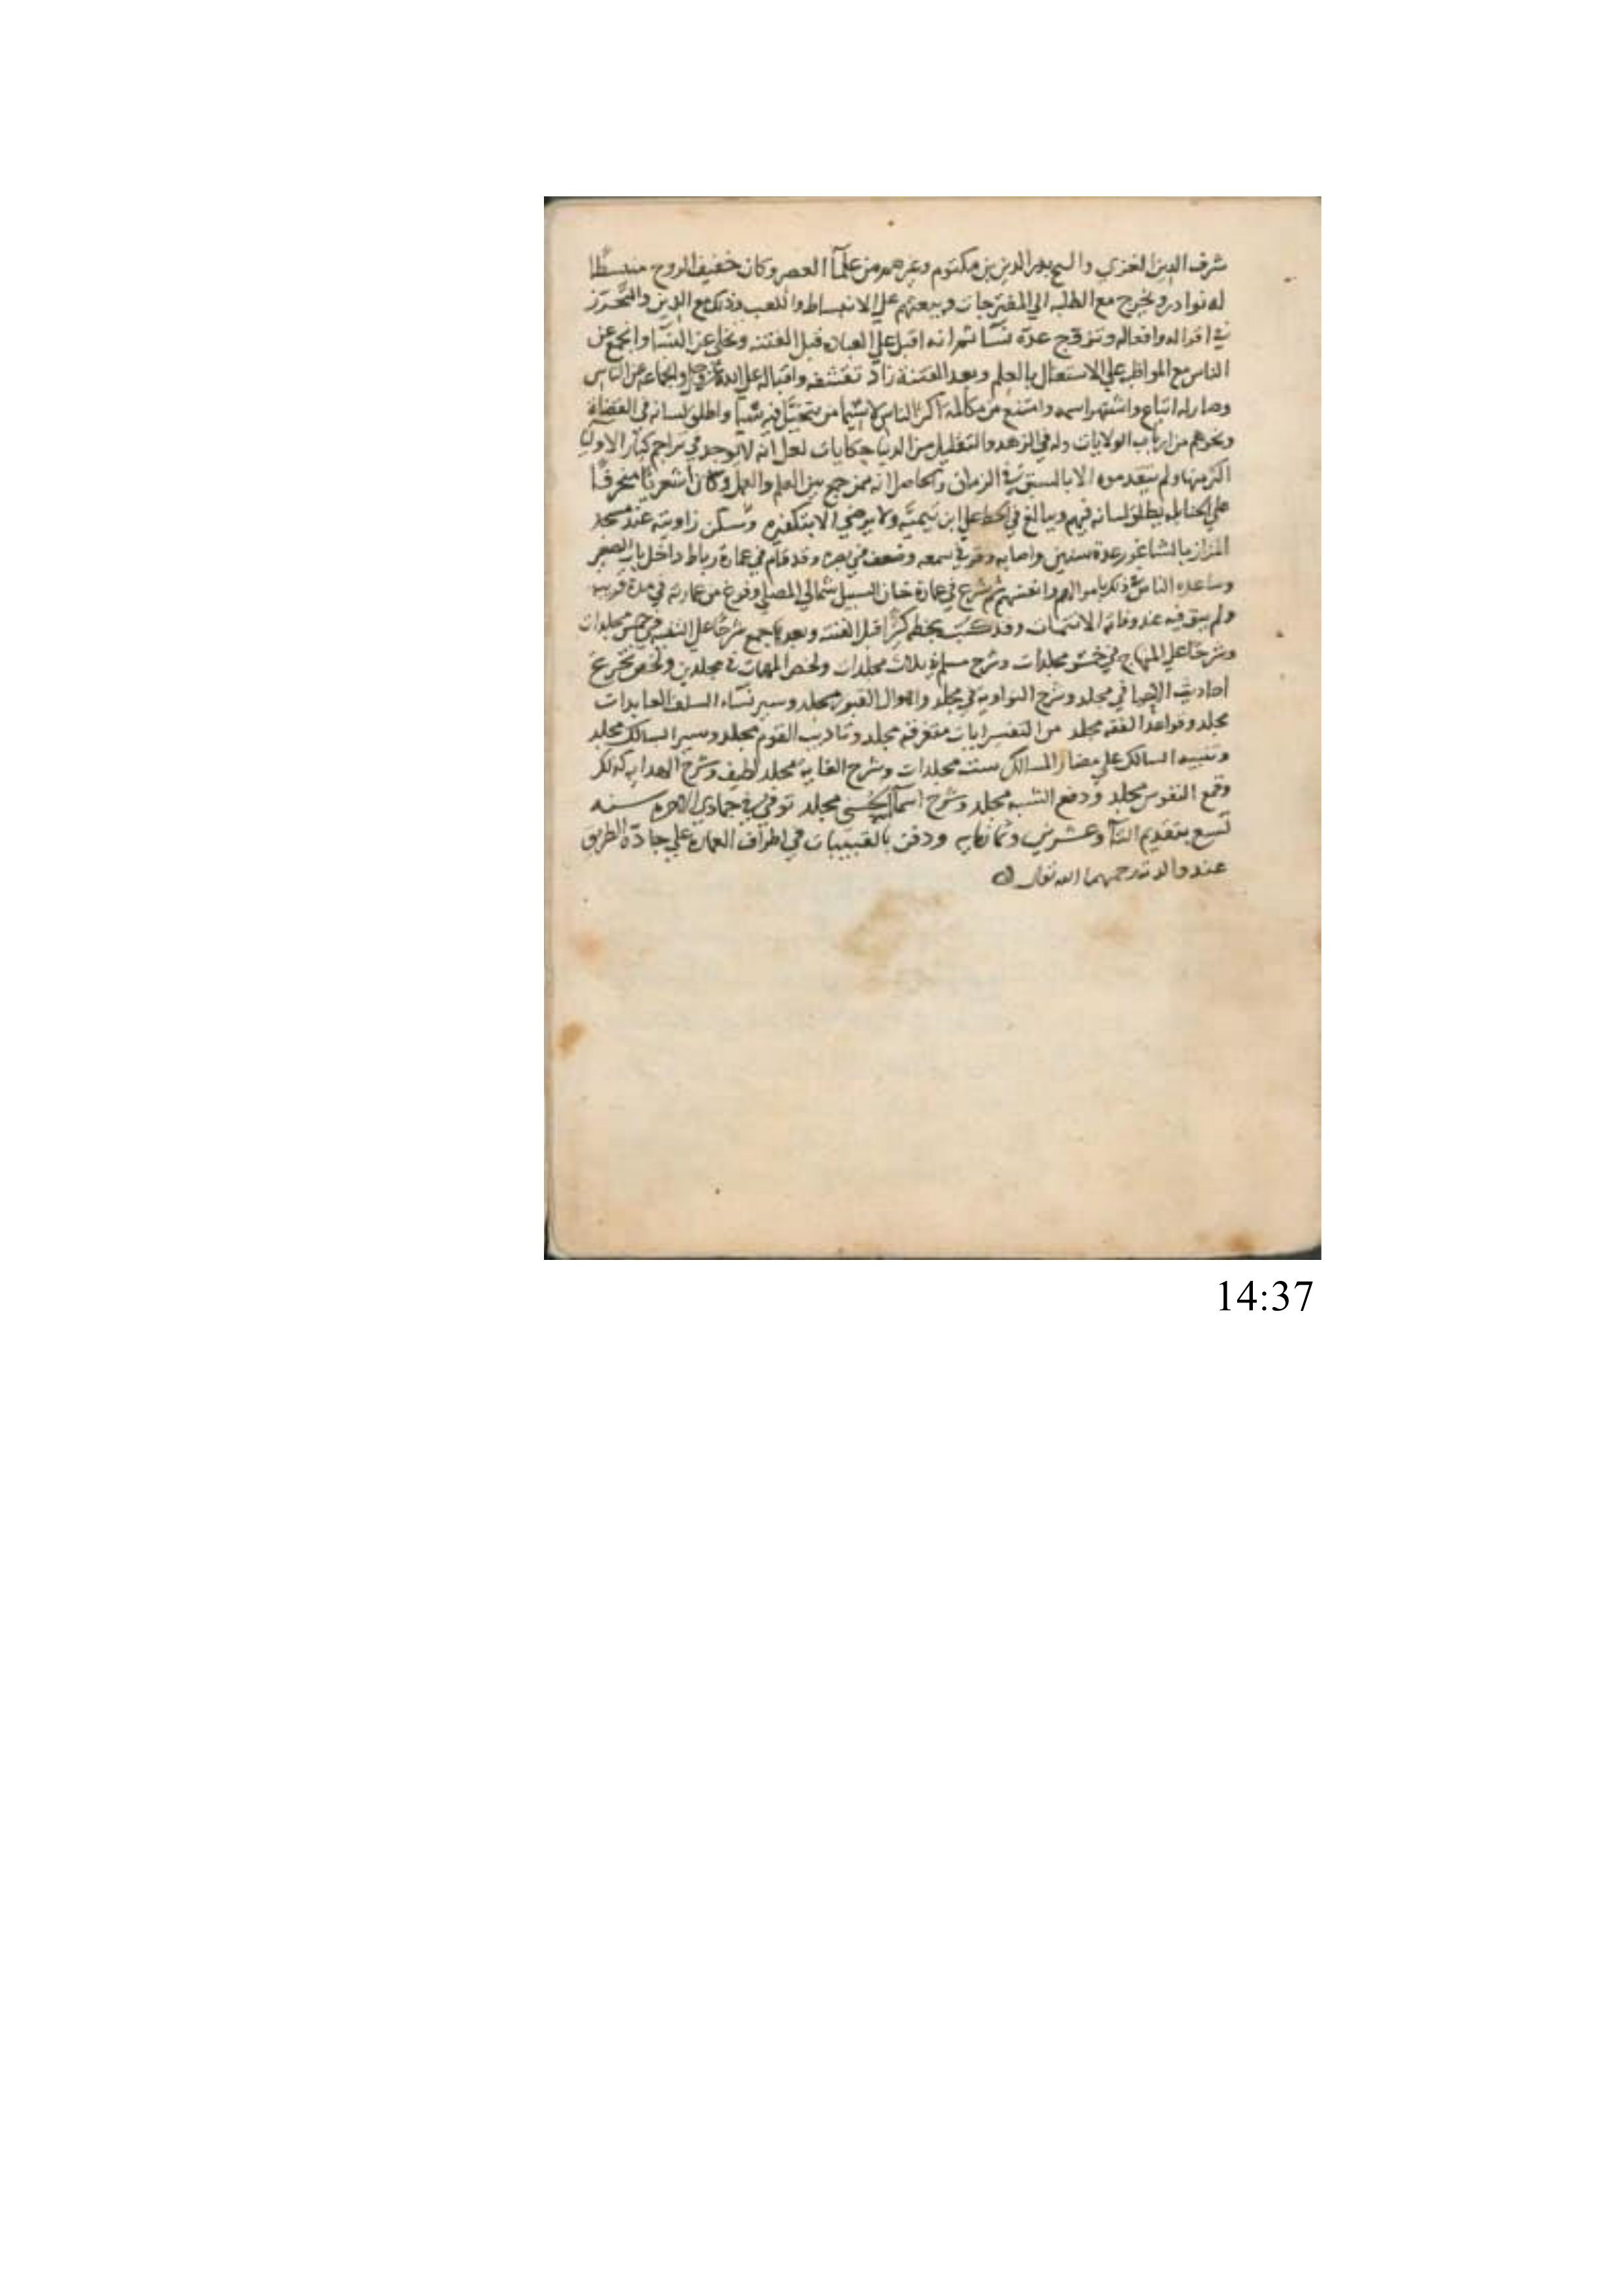 شرف الدين الغزي والشيخ بدر الدين بن مكتوم وغيرهم من علمآ العصر وكان خفيف الروح منبسطًا
له نوادر ويخرج مع الطلبه الي المفترجات ويبعثهم علي الانبساط واللعب وذلك مع الدين والتحرّز
في اقواله وافعاله وتزوج عدة نسآ ثم انه اقبل علي العباده قبل الفتنه وتخلي عن النسآ وانجمع عن
الناس مع المواظبه علي الاشتغال بالعلم وبعد الفتنة زاد تقشفه واقباله علي الله عز وجل وانجماعه عن الناس
وصار له اتباع واشتهر اسمه وامتنع من مكالمة اكثر الناس لاسيما من يتخيّل فيه شيأ واطلق لسانه في القضاة
ونحوهم من ارباب الولايات وله في الزهد والتقليل من الدنيا حكايات لعل انه لا يوجد في تراجم كبار الاوليآ
اكثر منها ولم يتقدموه الا بالسبق في الزمان والحاصل انه ممن جمع بين العلم والعمل وكان اشعريًا منحرفًا
علي الحنابله يطلق لسانه فيهم ويبالغ في الحط علي ابن تيميّه ولا يرضي الا بتكفيره وسكن زاويته عند مسجد
المزاز بالشاغور عدة سنين واصابه وقر في سمعه وضعف في بصره وقد قام في عمارة رباط داخل باب الصغير
وساعده الناس في ذلك باموالهم وانفسهم ثم شرع في عمارة خان السبيل شمالي المصلي وفرغ من عمارته في مدة قريبه
ولم يبق فيه عند وفاته الا تتمات وقد كتب بخطه كثيرًا قبل الفتنه وبعدها جمع شرحًا علي التنبيه في خمس مجلدات
وشرحًا علي المنهاج في خمس مجلدات وشرح مسلم في ثلاث مجلدات ولخص المهمات في مجلدين ولخص تخريج
احاديث الاحيا في مجلد وشرح النواويه في مجلد واهوال القبور مجلد وسير نسآء السلف العابدات
مجلد وقواعد الفقه مجلد من التفسير ايات متفرقه مجلد وتاديب القوم مجلد وسير السالك مجلد
وتنبيه السالك علي مضار المسالك ست مجلدات وشرح الغايه مجلد لطيف وشرح الهدايه كذلك
وقمع النفوس مجلد ودفع الشبه مجلد وشرح اسمآ الله الحسني مجلد توفي في جمادي الاخره سنه
تسع بتقديم التآ وعشرين وثمانمايه ودفن بالقبيبات في اطراف العماره علي جادّة الطريق
عند والدته رحمهما الله تعالي
14:37